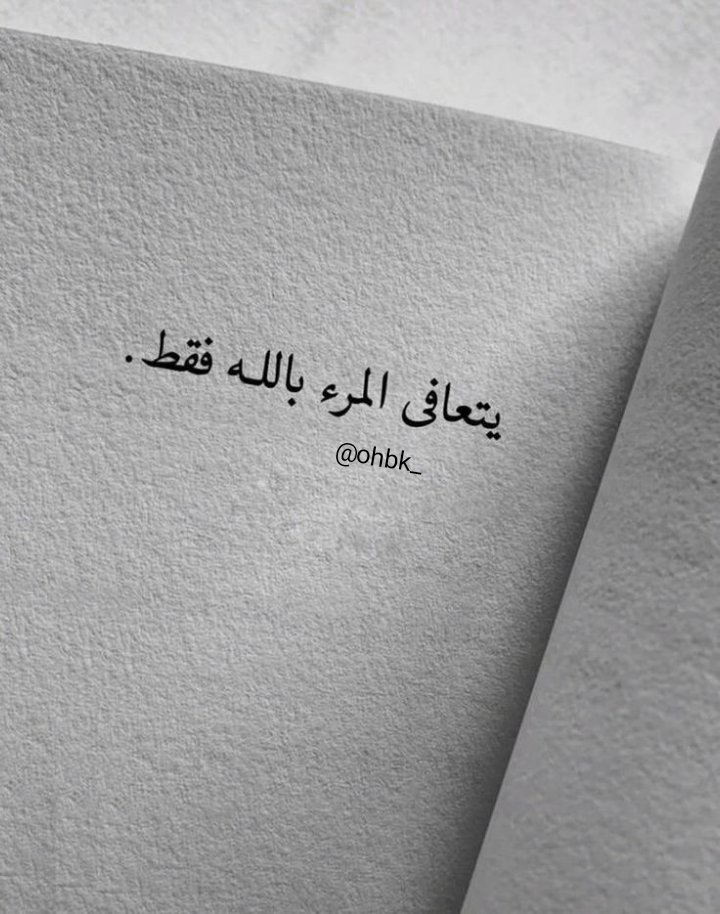 يتعافى المرء بالله فقط.
@ohbk_